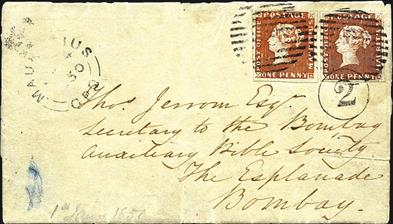 MAURITIUS
GPO
POST OFFICE POSTAGE ONE PENNY
POSTAGE ONE PENNY
2
Thos Jerrom Esqr.
Secretary to the Bombay
Auxiliary Bible Society
The Esplanade
Bombay.
1850